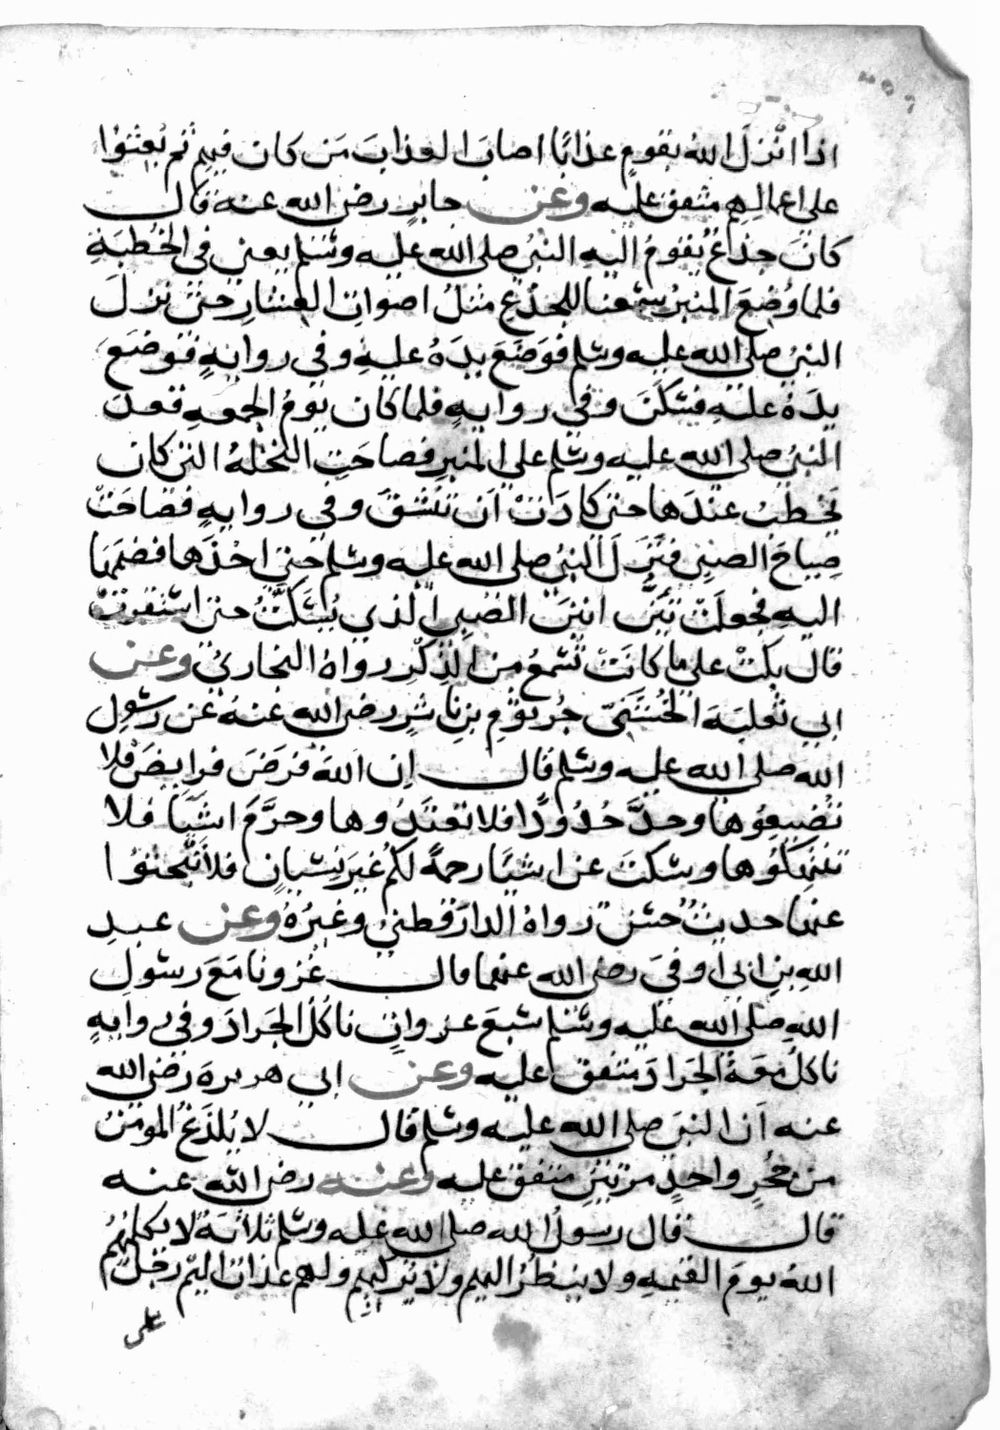 اذا انزل الله بقوم عذابا اصاب العذاب من كان فيهم ثم بعثوا
على اعمالهم متفق عليه وعن جابر رضى الله عنه قال
كان جذع يقوم اليه النبى صلى الله عليه وسلم يعنى فى الخطبة
فلما وضع المنبر سمعنا للجذع مثل اصوات العشار حتى نزل
النبى صلى الله عليه وسلم فوضع يده عليه وفى رواية فوضع
يده عليه فسكن وفى رواية فلما كان يوم الجمعه قعد
النبى صلى الله عليه وسلم على المنبر فصاحت النخلة التى كان
يخطب عندها حتى كادت ان تنشق وفى رواية فصاحت
صياح الصبى فنزل النبى صلى الله عليه وسلم حتى اخذها فضمها
اليه فجعلت تئن انين الصبى الذى يسكت حتى استقرت
قال بكت على ما كانت تسمع من الذكر رواه البخارى وعن
ابى ثعلبة الخشنى جرثوم بن ناشر رضى الله عنه عن رسول
الله صلى الله عليه وسلم قال ان الله فرض فرايض فلا
تضيعوها وحد حدودا فلا تعتدوها وحرم اشيا فلا
تنتهكوها وسكت عن اشيا رحمة لكم غير نسيان فلا تبحثوا
عنها حديث حسن رواه الدارقطنى وغيره وعن عبد
الله بن ابى اوفى رضى الله عنهما قال غزونا مع رسول
الله صلى الله عليه وسلم سبع غزوات ناكل الجراد وفى رواية
ناكل معه الجراد متفق عليه وعن ابى هريرة رضى الله
عنه ان النبى صلى الله عليه وسلم قال لا يلدغ المومن
من جحر واحد مرتين متفق عليه وعنه رضى الله عنه
قال قال رسول الله صلى الله عليه وسلم ثلاثة لا يكلمهم
الله يوم القيمه ولا ينظر اليهم ولا يزكيهم ولهم عذاب اليم رجل
على